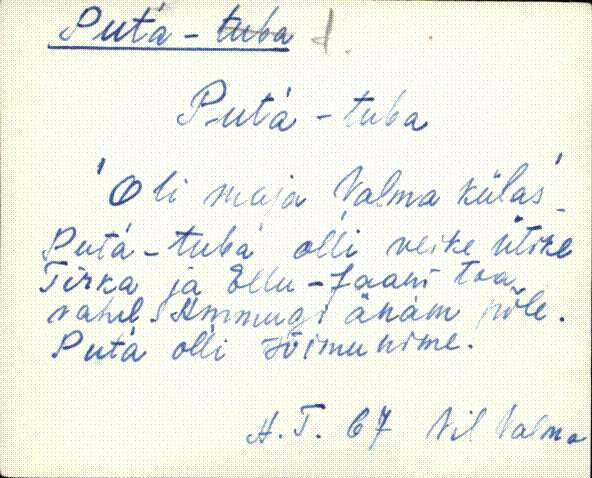 Putá - tuba
Putá - tuba
'Oli maja Valma külas'
Putá-tuba olli veike ütike
Tirka ja Ellu-Jaani toa
vahel. Ammugi änäm põle.
Putá olli sõimunime.
H.T. 67 Vil Valma